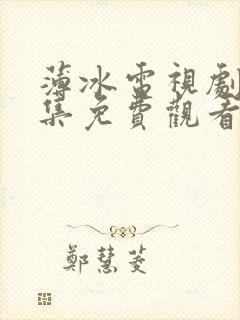 薄冰電視劇
集免費觀看
鄭慧菱